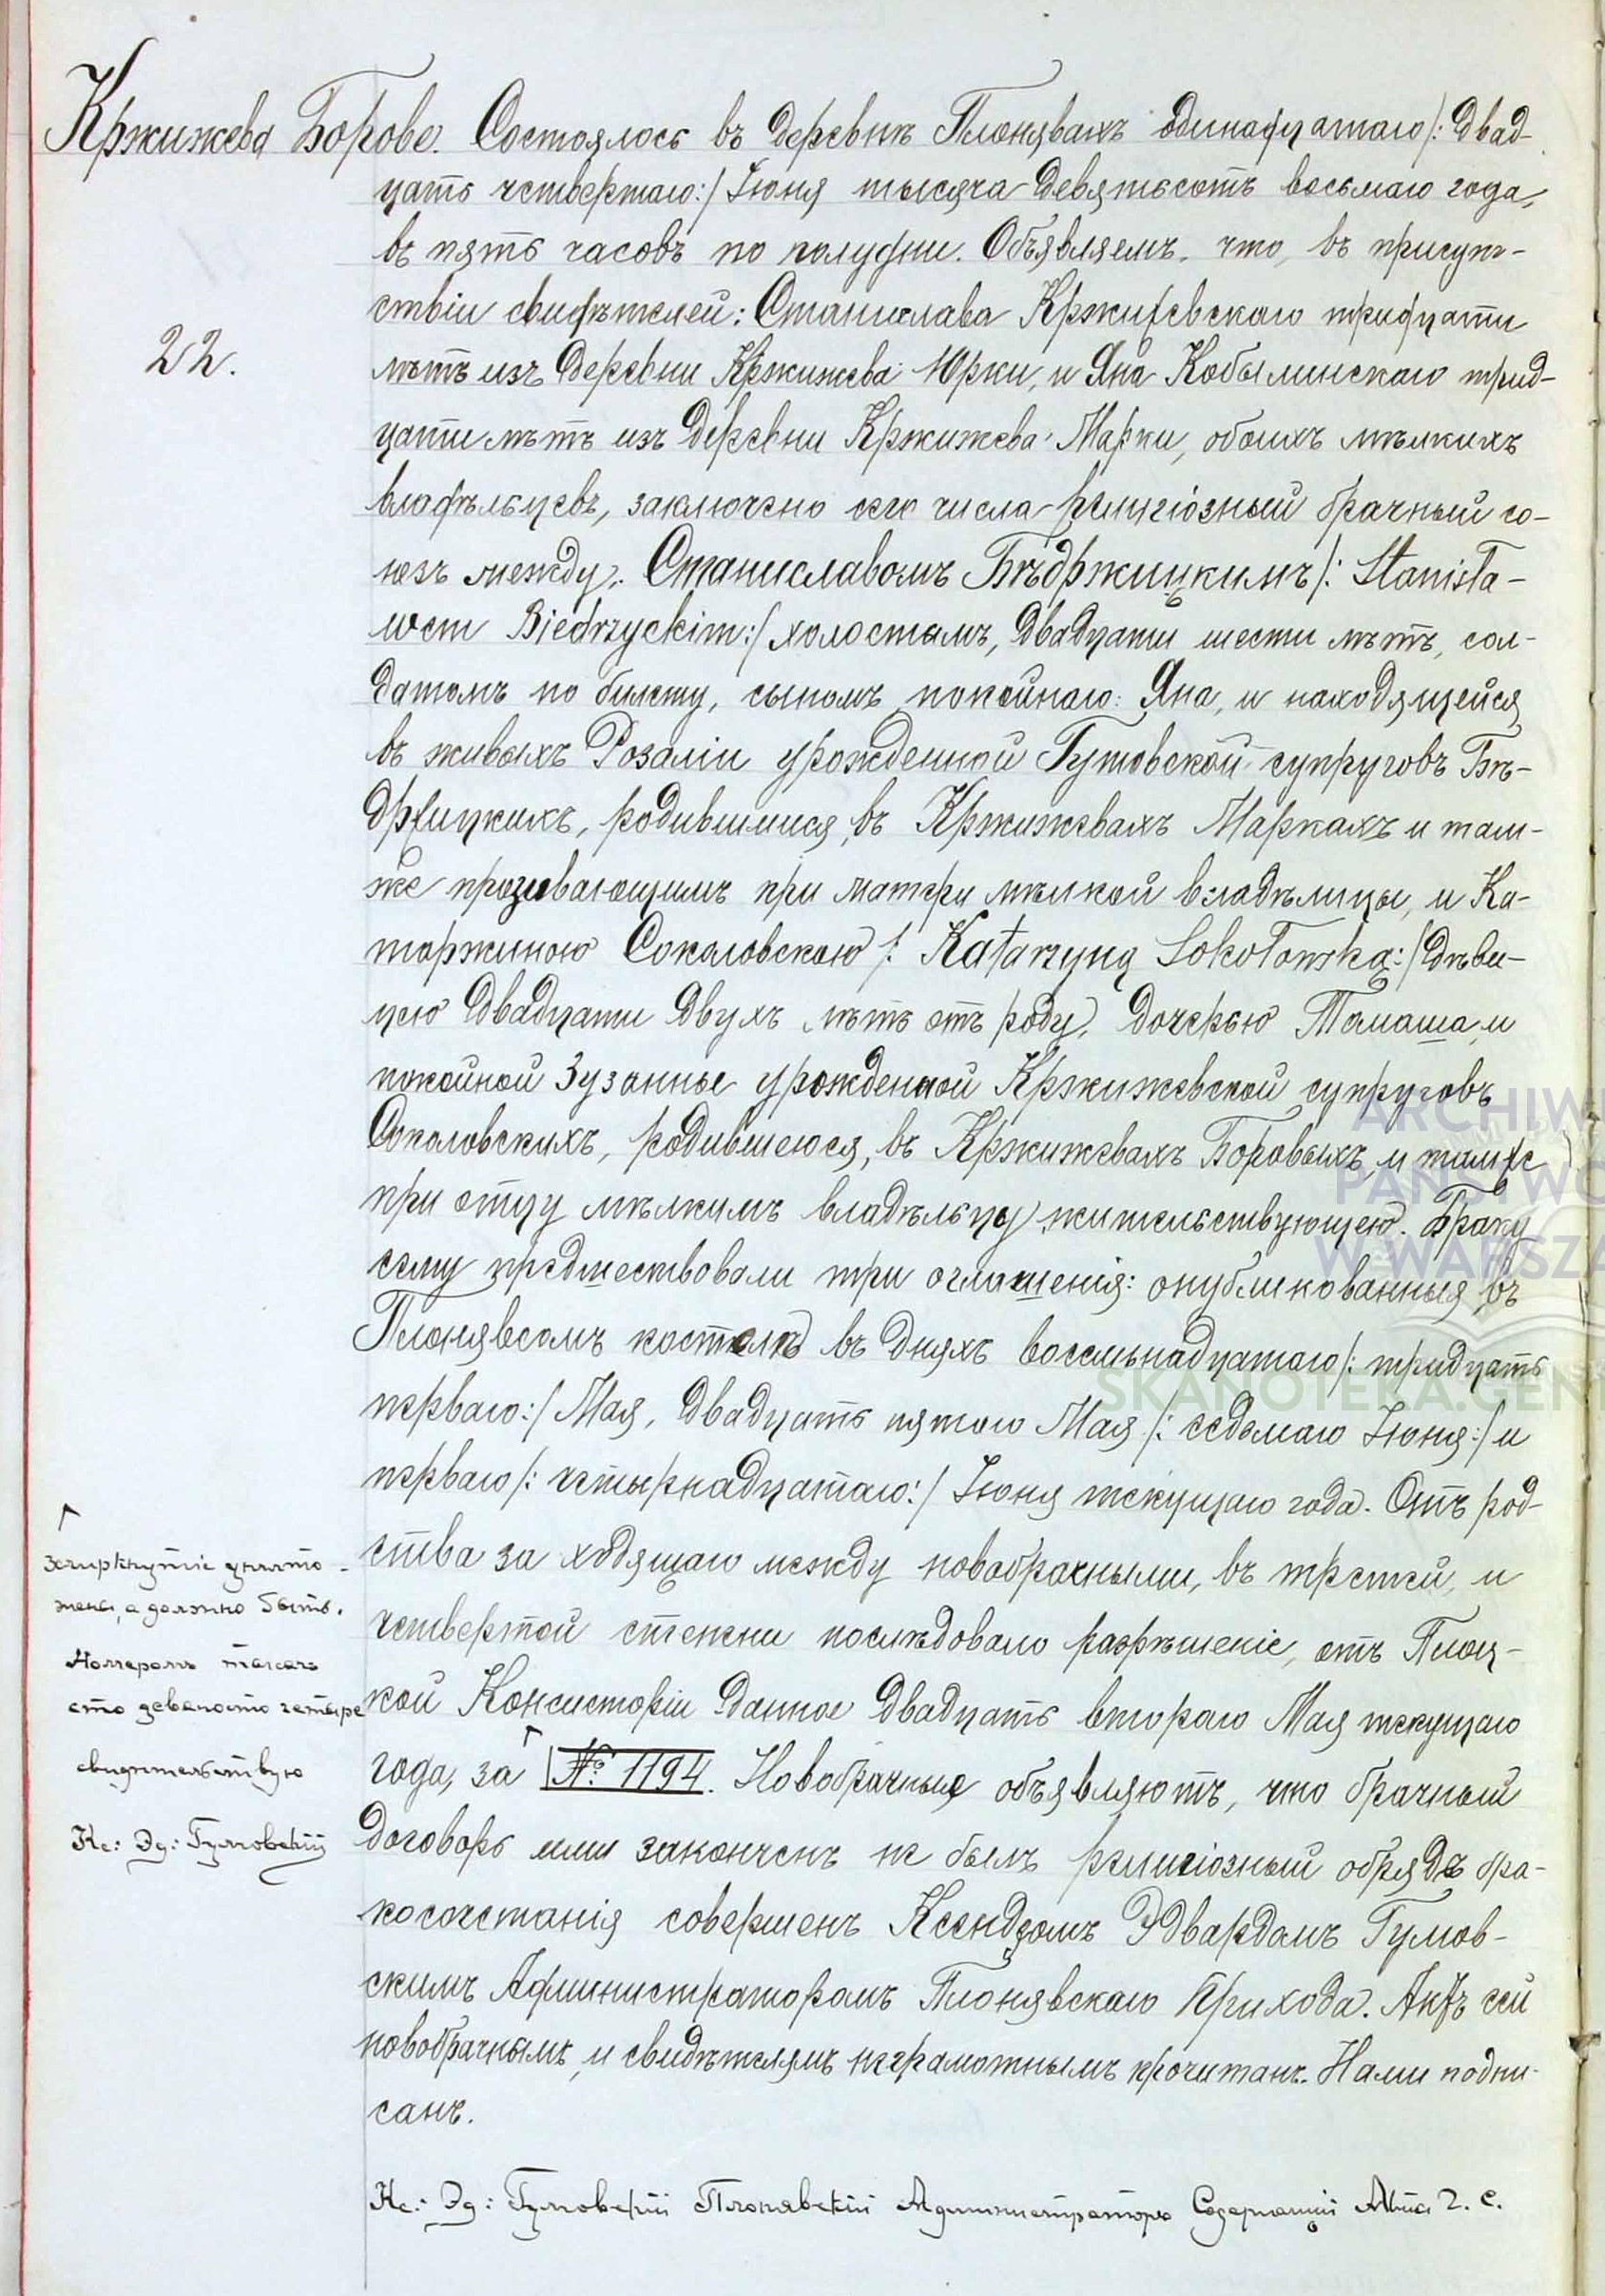 Кржижева Борове. Состоялось въ деревнѣ Плонявахъ одинадцатаго /: двад-
цать четвертаго :/ Іюня тысяча девятьсотъ восьмаго года,
въ пять часовъ по полудни. Объявляемъ, что, въ присут-
ствіи свидѣтелей: Станислава Кржижевскаго тридцати
22.
лѣтъ изъ деревни Кржижева Юрки, и Яна Кобылинскаго трид-
цати лѣтъ изъ деревни Кржижева Марки, обоихъ мѣлкихъ
владѣльцевъ, заключено сего числа религіозный брачный со-
юзъ между: Станиславомъ Бѣдржицкимъ /: Stanisła-
wem Biedrzyckim :/ холостымъ, двадцати шести лѣтъ, сол-
датомъ по билету, сыномъ покойнаго: Яна, и находящейся
въ живыхъ Розаліи урожденной Гутовской супруговъ Бѣ-
држицкихъ, родившимся въ Кржижевахъ Маркахъ и там-
же прозивающимъ при матери мѣлкой владѣлицы, и Ка-
торжиною Соколовскою /: Katarzyną Sokołowską :/ дѣви-
цею двадцати двухъ лѣтъ отъ роду, дочерью Томаша и
покойной Зузанные урожденной Кржижевской супруговъ
Соколовскихъ, родившеюся, въ Кржижевахъ Боровыхъ и тамже
при отцу мѣлкимъ владѣльцу жительствующею. Браку
сему предшествовали три оглашенія: опубликованныя въ
Плонявсомъ костелѣ въ дняхъ восемьнадцатаго /: тридцать
перваго :/ Мая, двадцать пятого Мая /: седьмаго Іюня :/ и
перваго /: четырнадцатаго :/ Іюня текущаго года. Отъ род-
ства за ходящаго между новобрачными, въ третей, и
четвертой степени послѣдовало разрѣшеніе, отъ Плоц-
кой Консисторіи данное двадцать втораго Мая текущаго
года, за № 1194. Новобрачные объявляютъ, что брачный
договоръ ими законченъ не былъ религіозный обрядъ бра-
косочетанія совершенъ Ксендзомъ Эдвардомъ Гумов-
скимъ Администраторомъ Плонявскаго Прихода. Актъ сей
новобрачнымъ, и свидѣтелямъ неграмотнымъ прочитанъ. Нами подпи-
санъ.
зачиркнутіе уничто-
жены, а должно быть.
Номеромъ тысячъ
сто девеносто четыре
свидѣтельствую
Кс: Эд: Гумовскій
Кс: Эд: Гумовскій Плонявскій Администраторъ Содержащій Акта г. с.